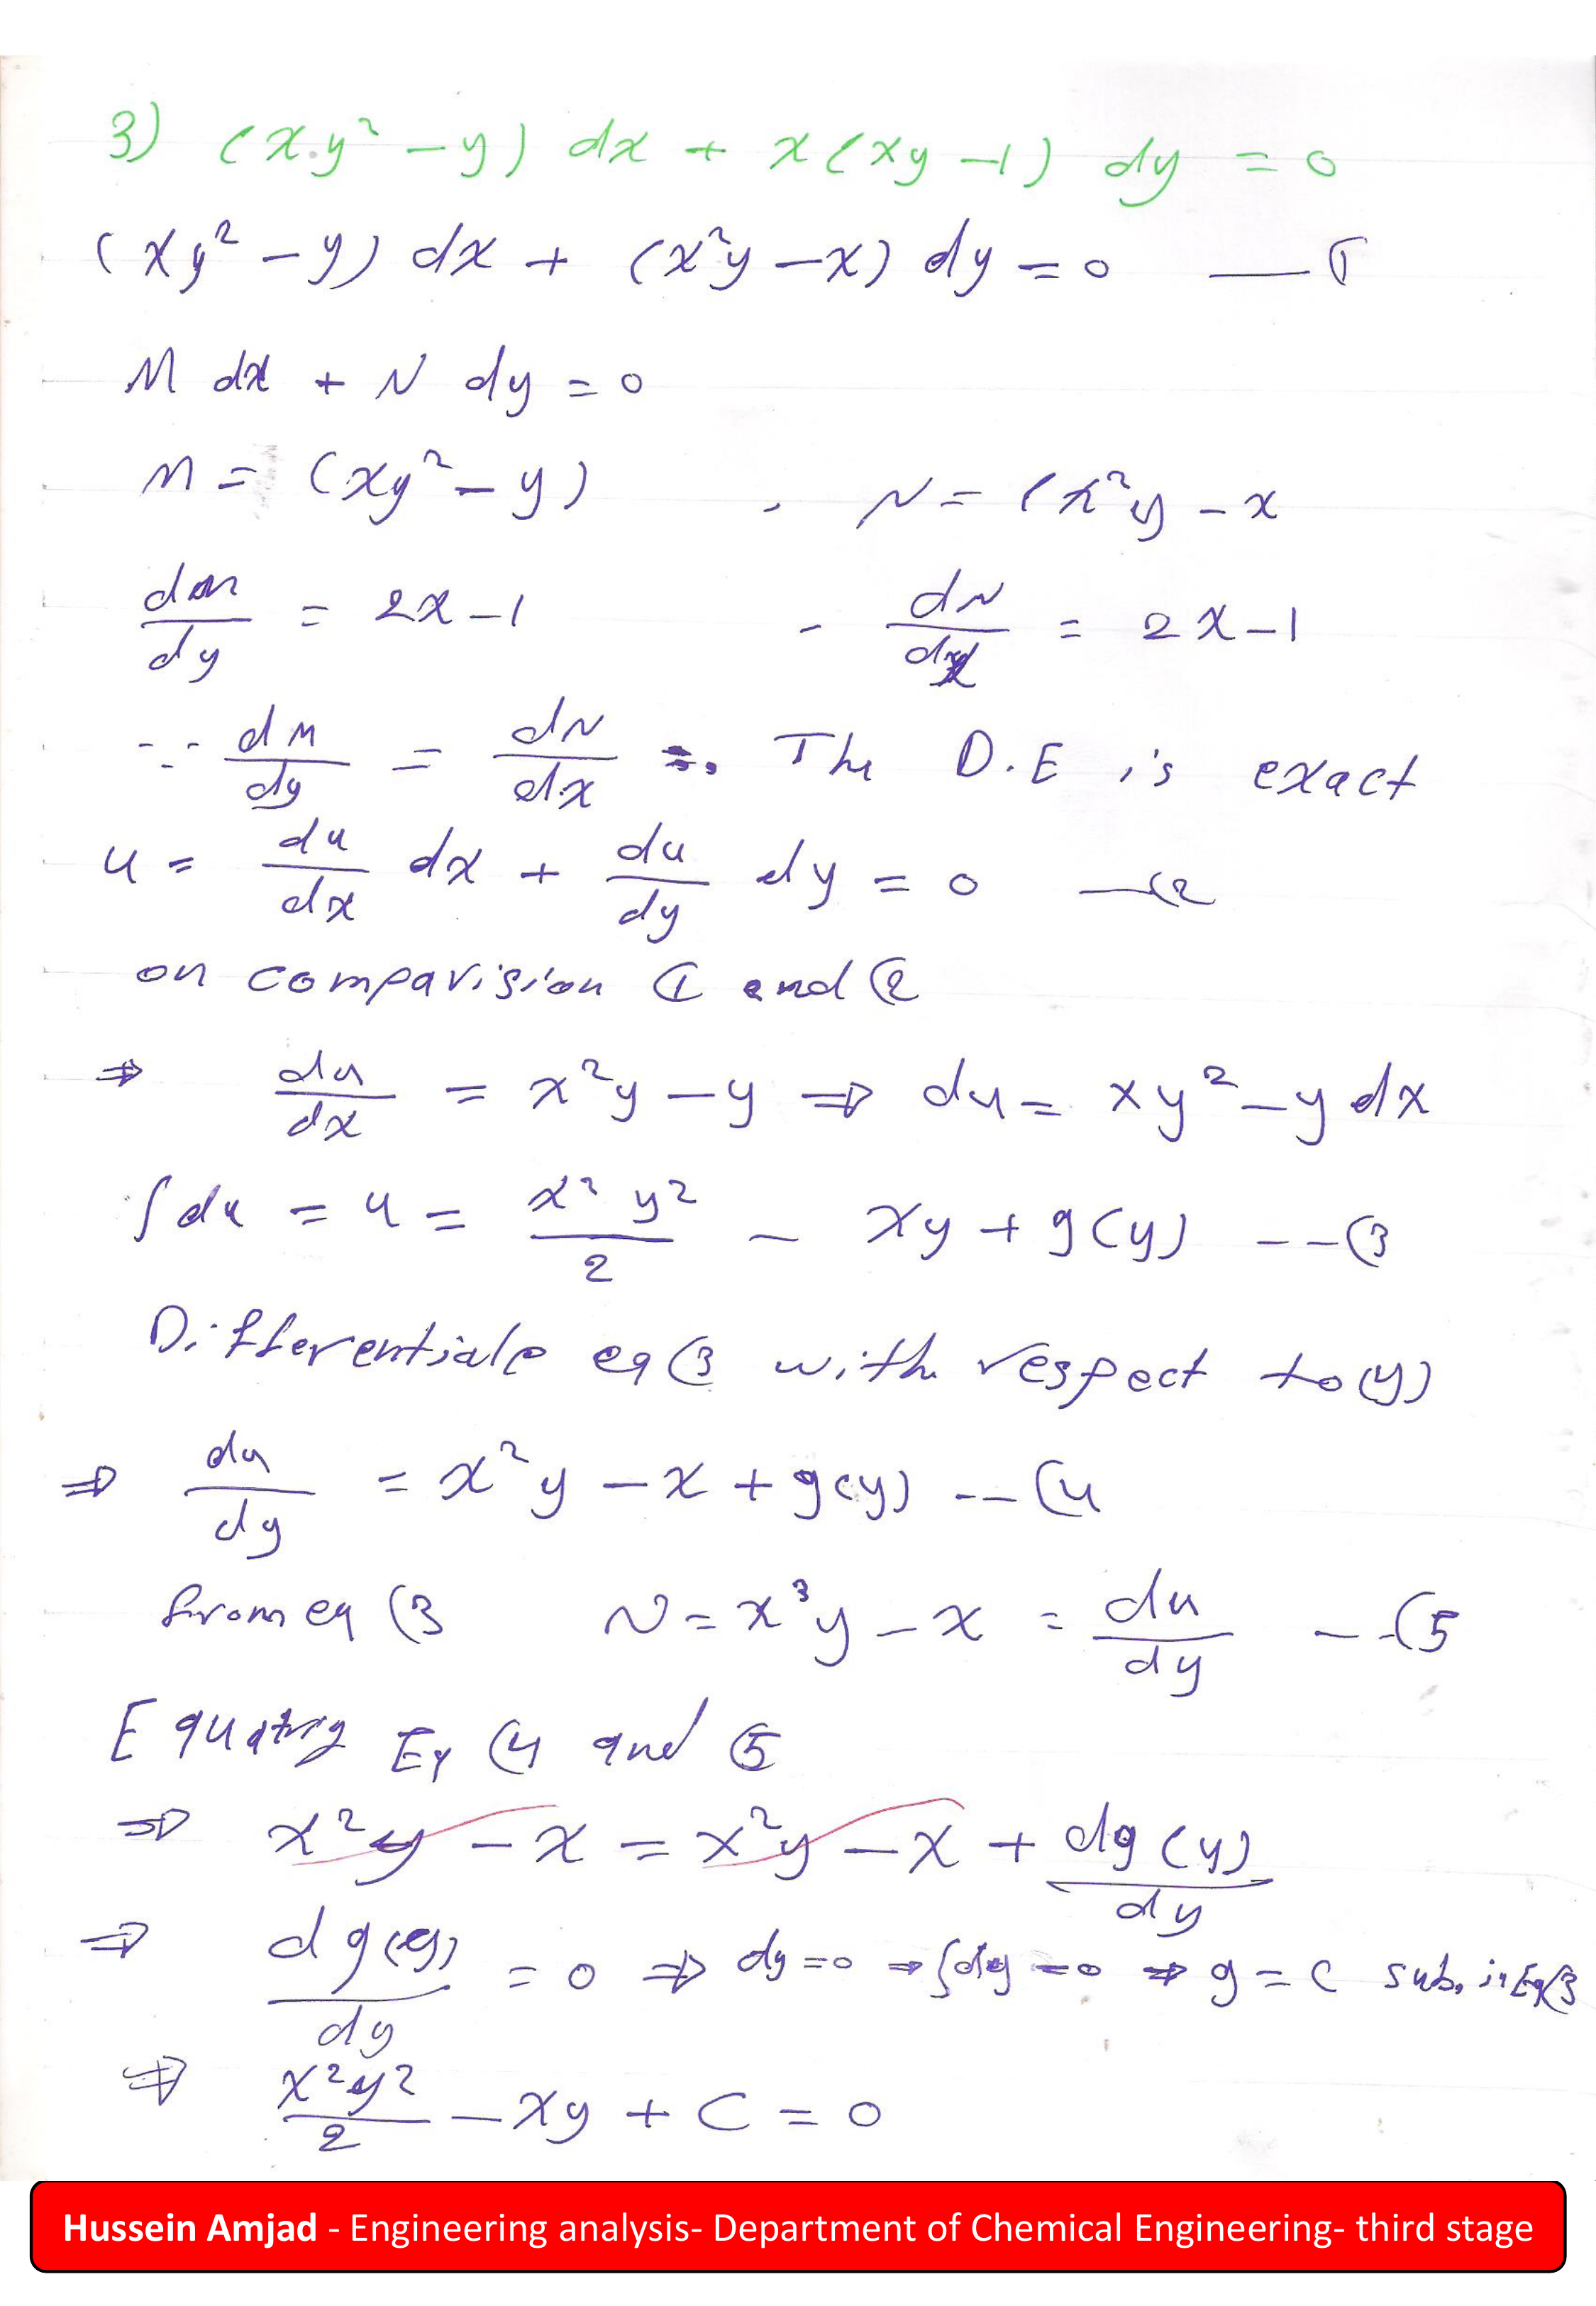 3) (x.y² - y) dx + x(xy - 1) dy = 0
(xy² - y) dx + (x²y - x) dy = 0 — (1
M dx + N dy = 0
M = (xy² - y) , N = (x²y - x
dM/dy = 2x - 1 , dN/dx = 2x - 1
∵ dM/dy = dN/dx ∴ The D.E is exact
u = du/dx dx + du/dy dy = 0 — (2
on comparision (1 and (2
⇒ du/dx = x²y - y ⇒ du = xy² - y dx
∫du = u = x² y²/2 - xy + g(y) -- (3
Differentiale eq (3 with respect to (y)
⇒ du/dy = x²y - x + g(y) -- (4
from eq (3 N = x³y - x = du/dy -- (5
Equating Eq (4 and (5
⇒ x²y - x = x²y - x + dg(y)/dy
⇒ dg(y)/dy = 0 ⇒ dg = 0 ⇒ ∫dg = 0 ⇒ g = C sub. in Eq(3
⇒ x²y²/2 - xy + C = 0
Hussein Amjad - Engineering analysis- Department of Chemical Engineering- third stage